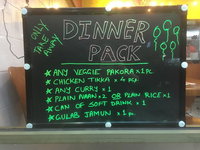 ONLY
TAKE
AWAY
DINNER
PACK
* ANY VEGGIE PAKORA x 1 pc
* CHICKEN TIKKA x 4 pcs
* ANY CURRY x 1
* PLAIN NAAN x 2 OR PLAIN RICE x 1
* CAN OF SOFT DRINK x 1
* GULAB JAMUN x 1 pc